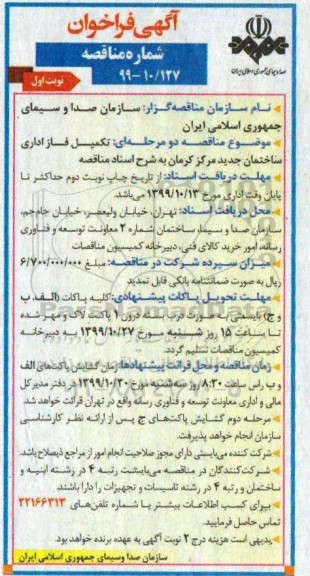 آگهی فراخوان
شماره مناقصه
۹۹-۱۰/۱۲۷
نوبت اول
صدا و سیمای جمهوری اسلامی ایران
نام سازمان مناقصه‌گزار: سازمان صدا و سیمای
جمهوری اسلامی ایران
موضوع مناقصه دو مرحله‌ای: تکمیل فاز اداری
ساختمان جدید مرکز کرمان به شرح اسناد مناقصه
مهلت دریافت اسناد: از تاریخ چاپ نوبت دوم حداکثر تا
پایان وقت اداری مورخ ۱۳۹۹/۱۰/۱۳ می‌باشد.
محل دریافت اسناد: تهران، خیابان ولیعصر، خیابان جام‌جم،
سازمان صدا و سیما، ساختمان شماره ۲ معاونت توسعه و فناوری
رسانه، امور خرید کالای فنی، دبیرخانه کمیسیون مناقصات
میزان سپرده شرکت در مناقصه: مبلغ ۶/۷۰۰/۰۰۰/۰۰۰
ریال به صورت ضمانتنامه بانکی قابل تمدید
مهلت تحویل پاکات پیشنهادی: کلیه پاکات (الف، ب
و ج) بایستی به صورت درب بسته درون ۱ پاکت، لاک و مهر شده
تا ساعت ۱۵ روز شنبه مورخ ۱۳۹۹/۱۰/۲۷ به دبیرخانه
کمیسیون مناقصات تسلیم گردد.
زمان مناقصه و محل قرائت پیشنهادها: زمان گشایش پاکت‌های الف
و ب راس ساعت ۸:۳۰ روز سه‌شنبه مورخ ۱۳۹۹/۱۰/۳۰ در دفتر مدیرکل
مالی و اداری معاونت توسعه و فناوری رسانه واقع در تهران قرائت خواهد شد.
مرحله دوم گشایش پاکت‌های ج پس از ارائه نظر کارشناسی
سازمان انجام خواهد پذیرفت.
شرکت کننده می‌بایستی دارای مجوز صلاحیت انجام امور از مراجع ذیصلاح باشد.
شرکت‌کنندگان در مناقصه می‌بایست رتبه ۴ در رشته ابنیه و
ساختمان و رتبه ۴ در رشته تاسیسات و تجهیزات را دارا باشند
برای کسب اطلاعات بیشتر با شماره تلفن‌های ۲۲۱۶۶۳۱۳
تماس حاصل فرمایید.
بدیهی است هزینه درج ۲ نوبت آگهی به عهده برنده خواهد بود.
سازمان صدا وسیمای جمهوری اسلامی ایران